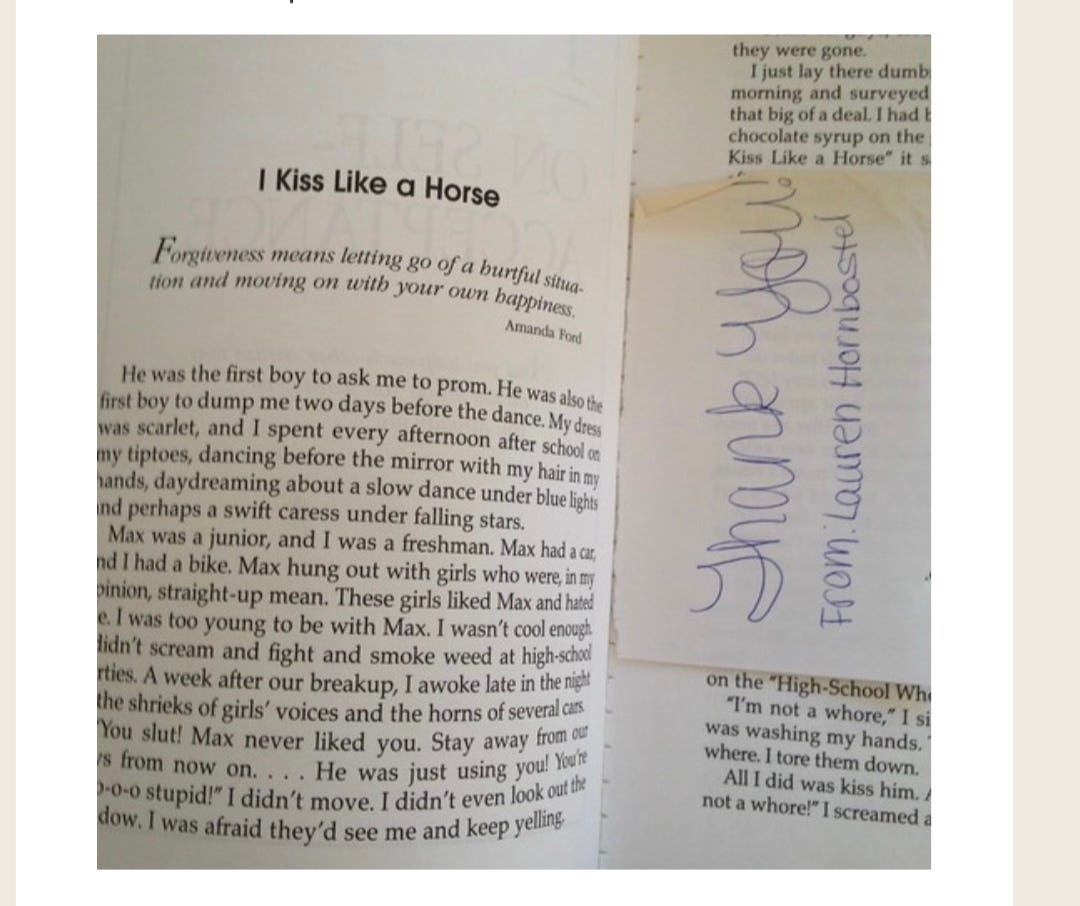 I Kiss Like a Horse
Forgiveness means letting go of a hurtful situa-
tion and moving on with your own happiness.
Amanda Ford
He was the first boy to ask me to prom. He was also the
first boy to dump me two days before the dance. My dress
was scarlet, and I spent every afternoon after school on
my tiptoes, dancing before the mirror with my hair in my
hands, daydreaming about a slow dance under blue lights
and perhaps a swift caress under falling stars.
Max was a junior, and I was a freshman. Max had a car,
nd I had a bike. Max hung out with girls who were, in my
pinion, straight-up mean. These girls liked Max and hated
e. I was too young to be with Max. I wasn't cool enough.
didn't scream and fight and smoke weed at high-school
rties. A week after our breakup, I awoke late in the night
the shrieks of girls' voices and the horns of several cars.
"You slut! Max never liked you. Stay away from our
ys from now on. . . . He was just using you! You're
o-o-o stupid!" I didn't move. I didn't even look out the
dow. I was afraid they'd see me and keep yelling.
they were gone.
I just lay there dumb
morning and surveyed
that big of a deal. I had
chocolate syrup on the
Kiss Like a Horse" it s
Thank you!
From: Lauren Hornbostel
on the "High-School Who
"I'm not a whore," I si
was washing my hands.
where. I tore them down.
All I did was kiss him.
not a whore!" I screamed a